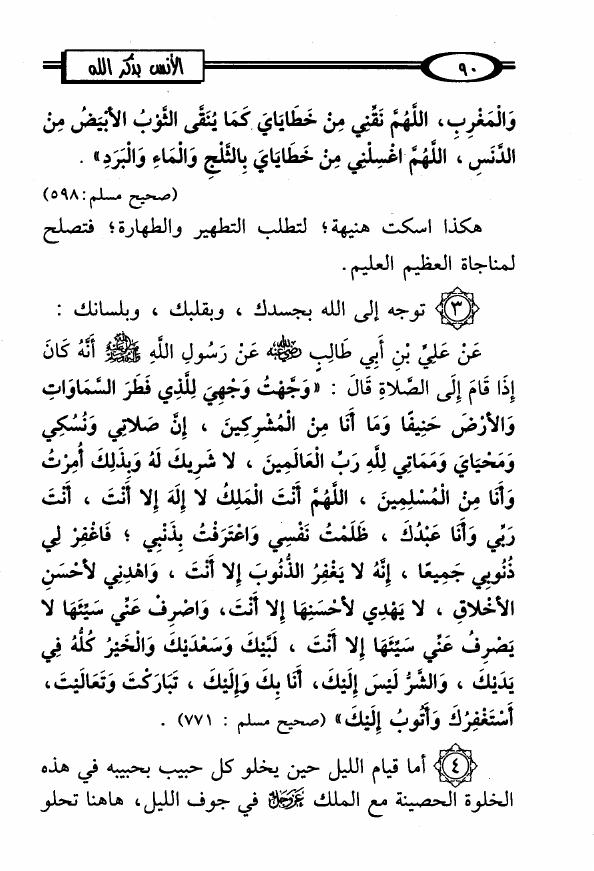 ٩٠
الأنس بذكر الله
وَالْمَغْرِبِ، اللَّهُمَّ نَقِّنِي مِنْ خَطَايَايَ كَمَا يُنَقَّى الثَّوْبُ الأَبْيَضُ مِنَ
الدَّنَسِ ، اللَّهُمَّ اغْسِلْنِي مِنْ خَطَايَايَ بِالثَّلْجِ وَالْمَاءِ وَالْبَرَدِ» .
(صحيح مسلم: ٥٩٨)
هكذا اسكت هنيهة؛ لتطلب التطهير والطهارة؛ فتصلح
لمناجاة العظيم العليم.
٣ توجه إلى الله بجسدك ، وبقلبك ، وبلسانك :
عَنْ عَلِيِّ بْنِ أَبِي طَالِبٍ رضي الله عنه عَنْ رَسُولِ اللَّهِ ﷺ أَنَّهُ كَانَ
إِذَا قَامَ إِلَى الصَّلاةِ قَالَ : «وَجَّهْتُ وَجْهِيَ لِلَّذِي فَطَرَ السَّمَاوَاتِ
وَالأَرْضَ حَنِيفًا وَمَا أَنَا مِنَ الْمُشْرِكِينَ ، إِنَّ صَلاتِي وَنُسُكِي
وَمَحْيَايَ وَمَمَاتِي لِلَّهِ رَبِّ الْعَالَمِينَ ، لا شَرِيكَ لَهُ وَبِذَلِكَ أُمِرْتُ
وَأَنَا مِنَ الْمُسْلِمِينَ ، اللَّهُمَّ أَنْتَ الْمَلِكُ لا إِلَهَ إِلا أَنْتَ ، أَنْتَ
رَبِّي وَأَنَا عَبْدُكَ ، ظَلَمْتُ نَفْسِي وَاعْتَرَفْتُ بِذَنْبِي ؛ فَاغْفِرْ لِي
ذُنُوبِي جَمِيعًا ، إِنَّهُ لا يَغْفِرُ الذُّنُوبَ إِلا أَنْتَ ، وَاهْدِنِي لأَحْسَنِ
الأَخْلاقِ ، لا يَهْدِي لأَحْسَنِهَا إِلا أَنْتَ، وَاصْرِفْ عَنِّي سَيِّئَهَا لا
يَصْرِفُ عَنِّي سَيِّئَهَا إِلا أَنْتَ ، لَبَّيْكَ وَسَعْدَيْكَ وَالْخَيْرُ كُلُّهُ فِي
يَدَيْكَ ، وَالشَّرُّ لَيْسَ إِلَيْكَ، أَنَا بِكَ وَإِلَيْكَ ، تَبَارَكْتَ وَتَعَالَيْتَ،
أَسْتَغْفِرُكَ وَأَتُوبُ إِلَيْكَ» (صحيح مسلم : ٧٧١) .
٤ أما قيام الليل حين يخلو كل حبيب بحبيبه في هذه
الخلوة الحصينة مع الملك عز وجل في جوف الليل، هاهنا تحلو